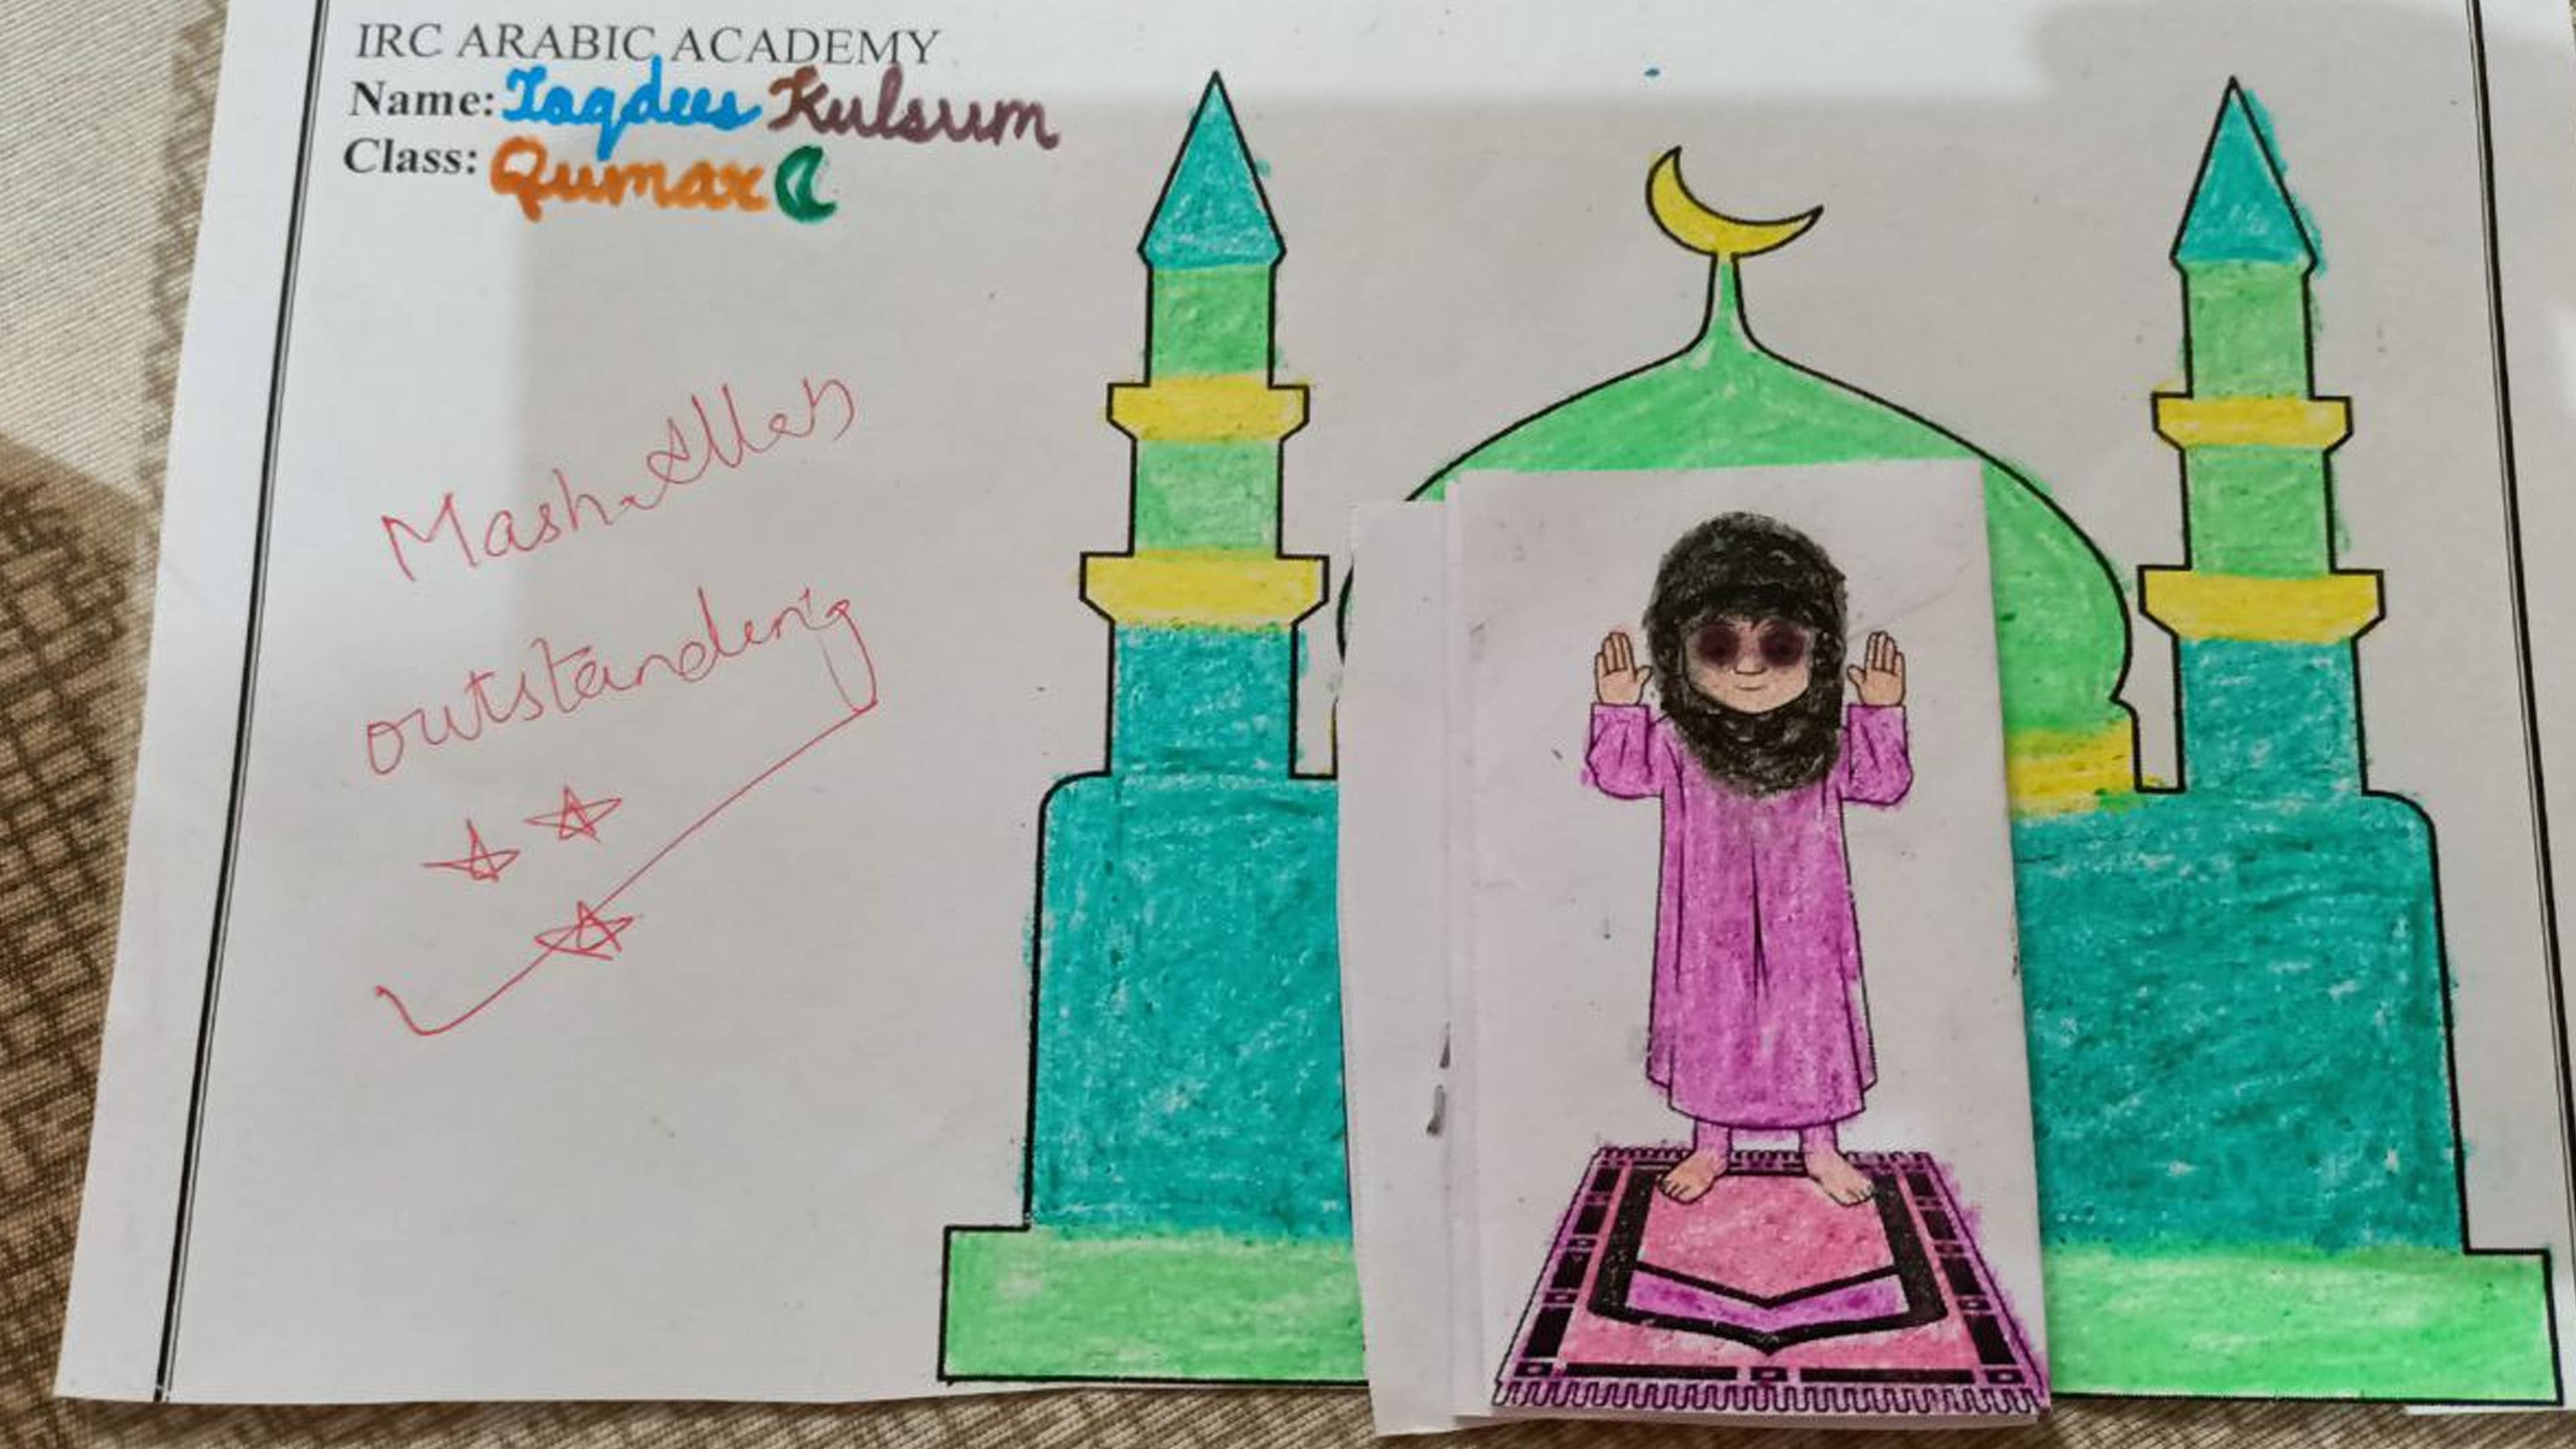 IRC ARABIC ACADEMY
Name: Taqdees Kulsum
Class: Qumar
Mash-Allah
outstanding